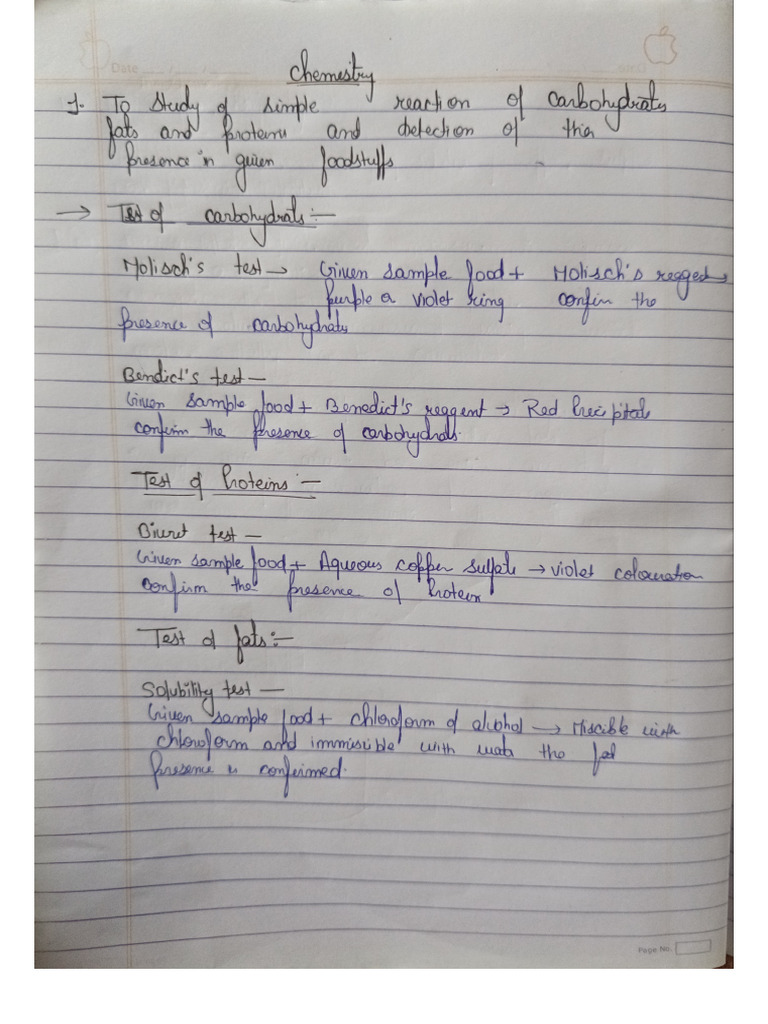 Date
Chemestry
1. To study of simple reaction of carbohydrats
fats and proteins and detection of thier
presence in given foodstuffs
→ Test of carbohydrats:-
Molisch's test → Given sample food + Molisch's regged →
purple a violet ring confin the
presence of carbohydrats
Bendict's test —
Given sample food + Benedict's reggent → Red Precipitate
confirm the presence of carbohydrats.
Test of Proteins :-
Biuret test —
Given sample food + Aqueous copper sulfate → violet colouration
confirm the presence of Protein
Test of fats:-
Solubility test —
Given sample food + chloroform of alcohol → Miscible with
chloroform and immiscible with water the fat
presence is confirmed.
Page No.